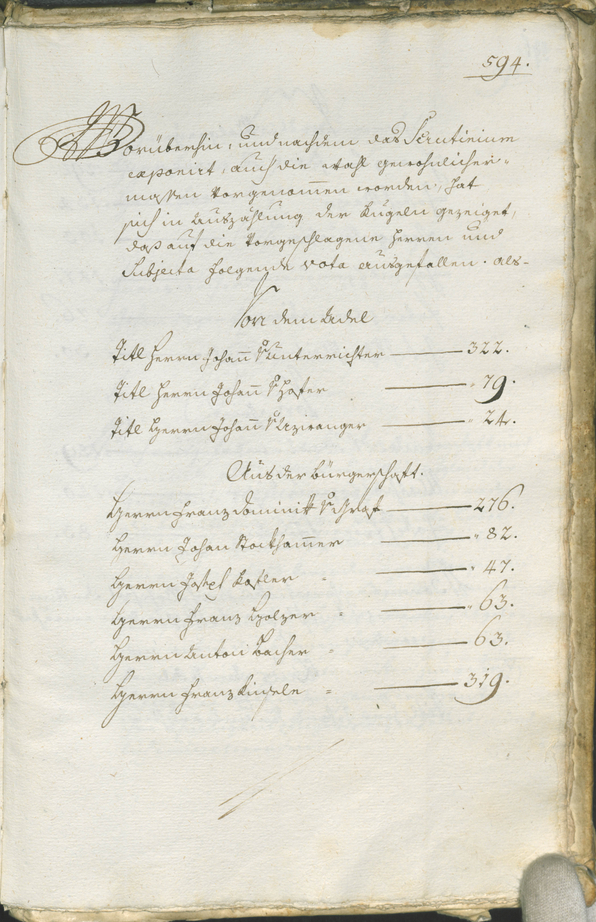 594.
Worüberhin, und nachdem das Scrutinium
exponirt, auch die wahl gewohnlicher-
massen Vorgenommen worden, hat
sich in Auszählung der Kugeln gezeiget,
daß auf die Vorgeschlagene Herren und
Subjecta folgende vota ausgefallen. als-
Von dem Adel
Titl Herrn Johañ v Unterrichter — 322.
Titl Herrn Johañ v Hofer — 79.
Titl Herrn Johañ v — 24.
Aus der bürgerschaft.
Herrn Franz Dominikh v Schraf — 276.
Herrn Johan Stockhammer — 82.
Herrn Joseph Kofler — 47.
Herrn Franz Holzer — 63.
Herrn Antoni Bacher — 63.
Herrn Franz Kinsele — 319.